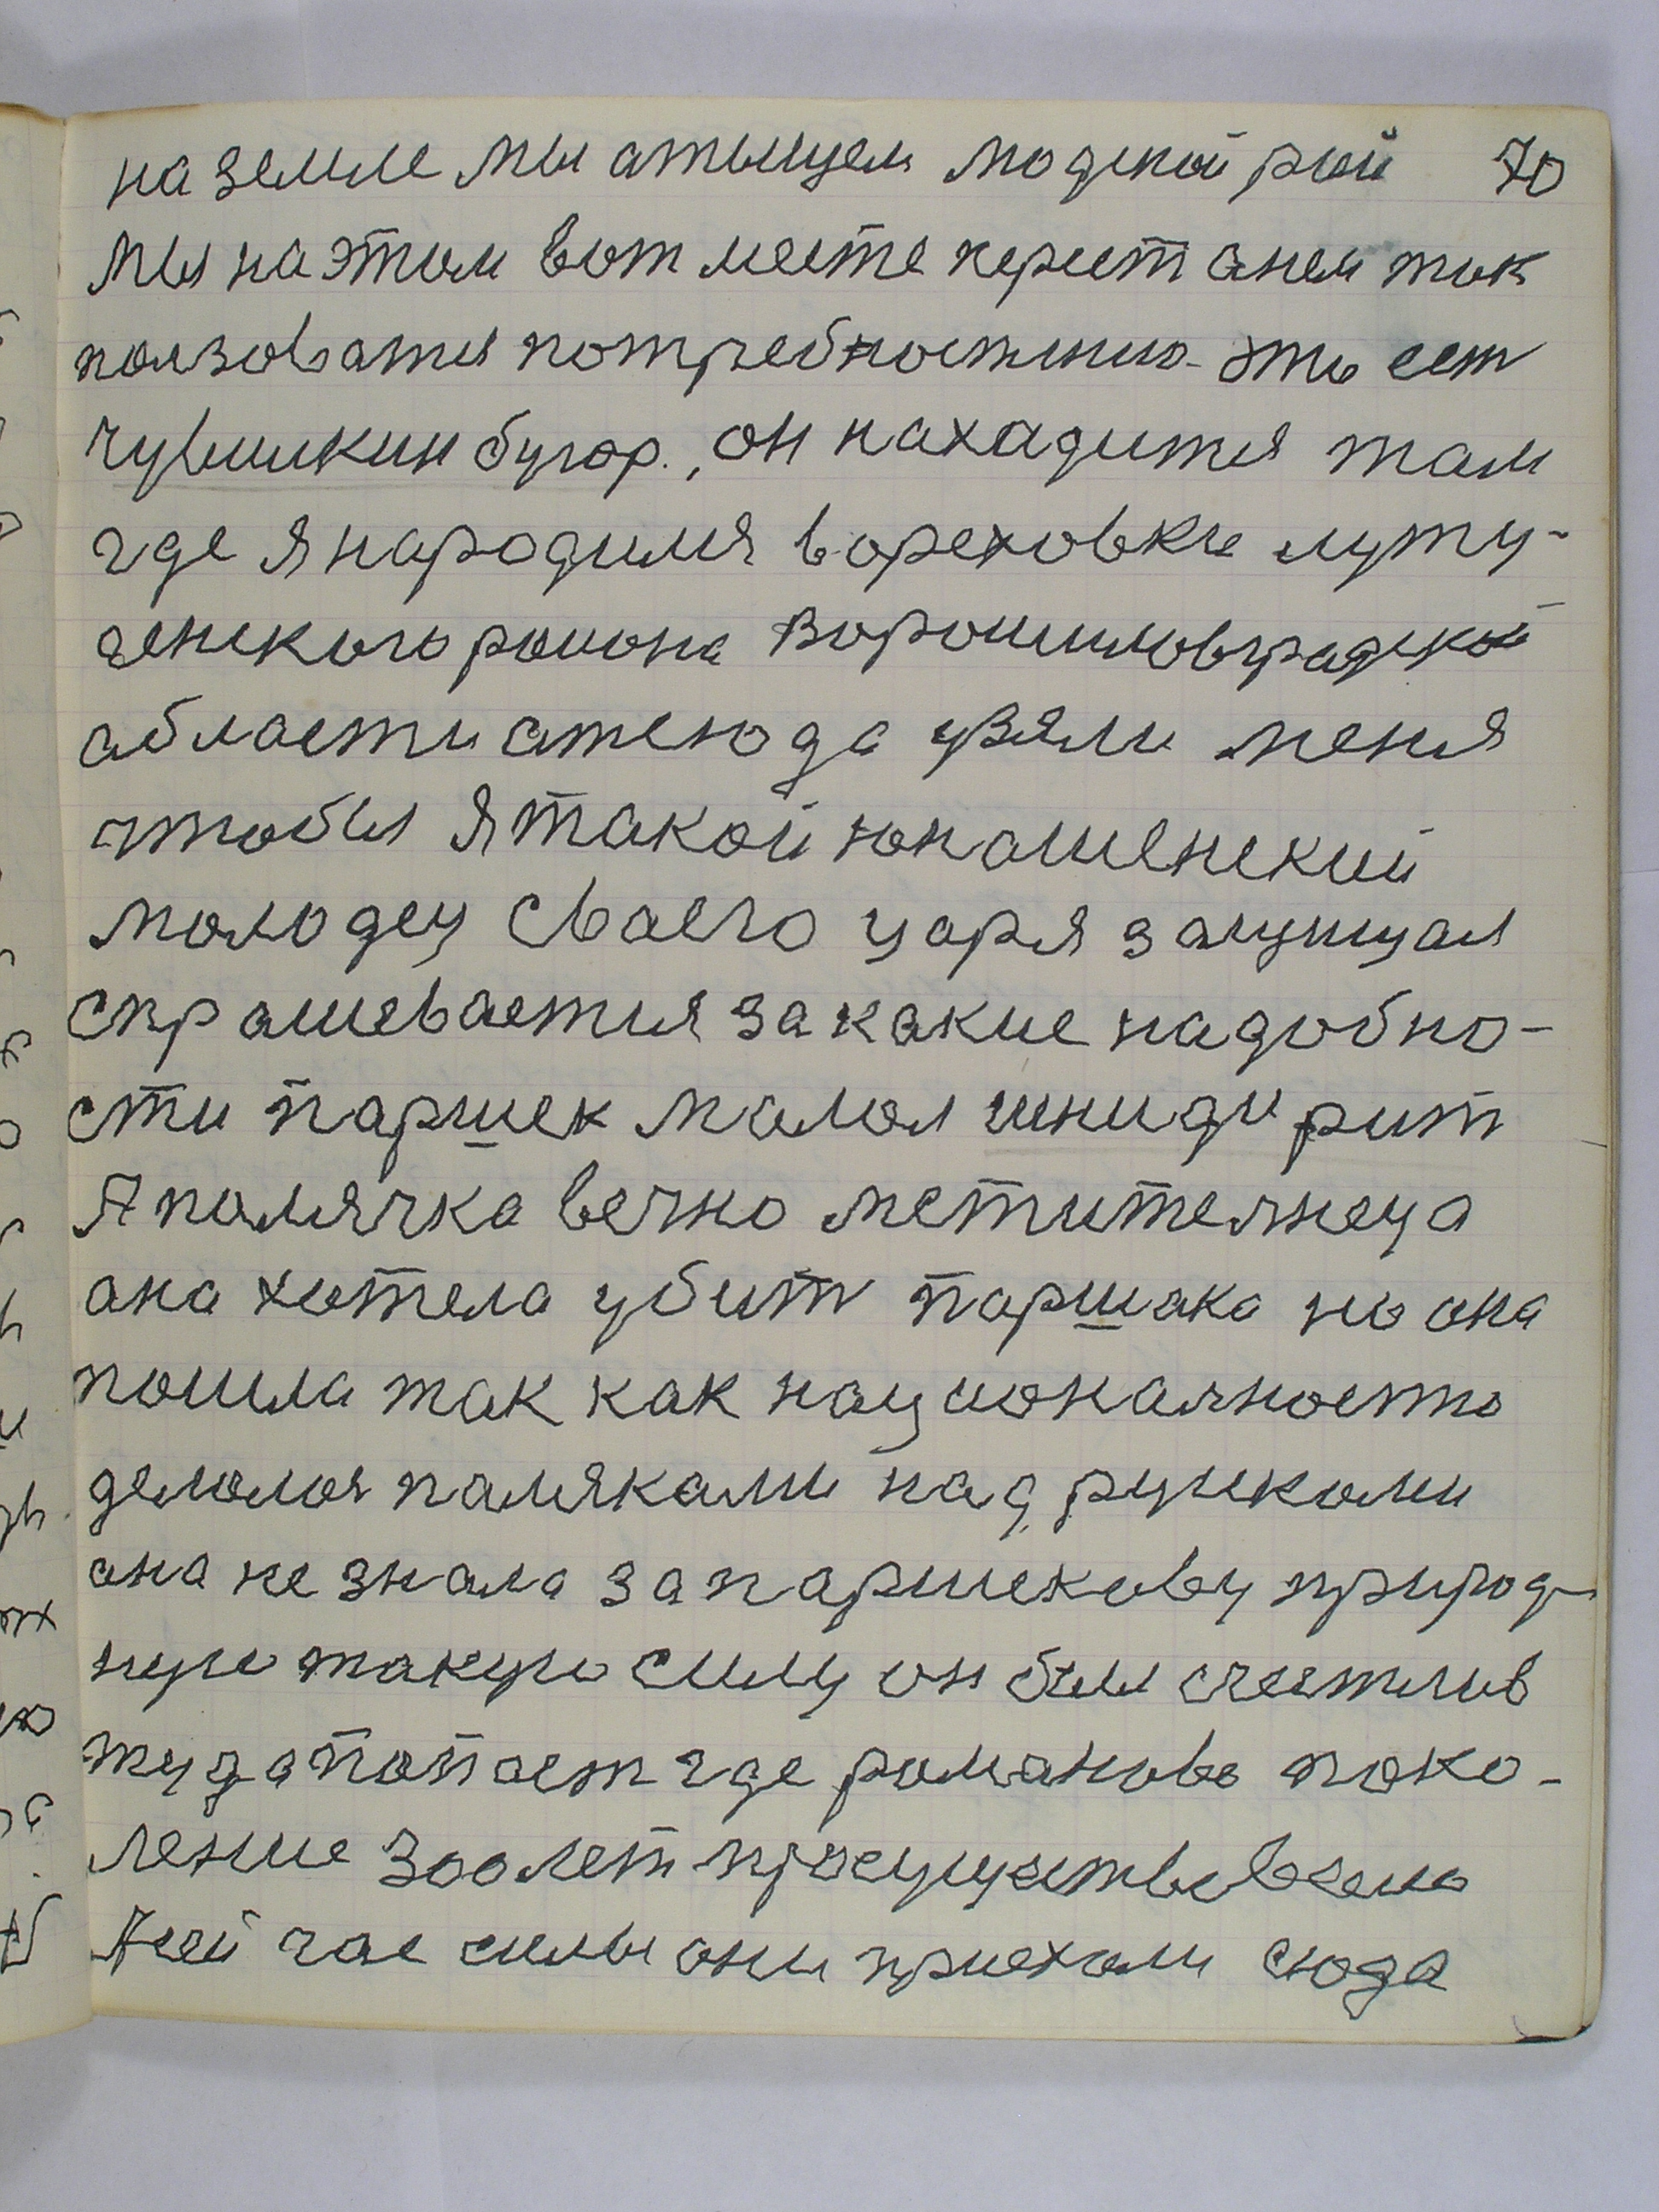 на земле мы атыщем людской рай 70
мы на этом вот месте перестанем так
ползоватся потребностию это ест
чувилкин бугор., он находится там
где я народился в ореховке луту-
генского раиона ворошиловградской
области отсюда узяли меня
чтобы я такой юнашенский
молодец своего царя защищал
спрашевается за какие надобно-
сти паршек малол
А полячка вечно мстителнеца
ана хотела убит паршака но она
пошла так как национальность
делолоя паляками над рускоми
она не знала за паршекову природ-
ную такую силу он был счестлив
туда попает где романово поко-
ление 300 лет просуществовало
А сей час силы они приехали сюда